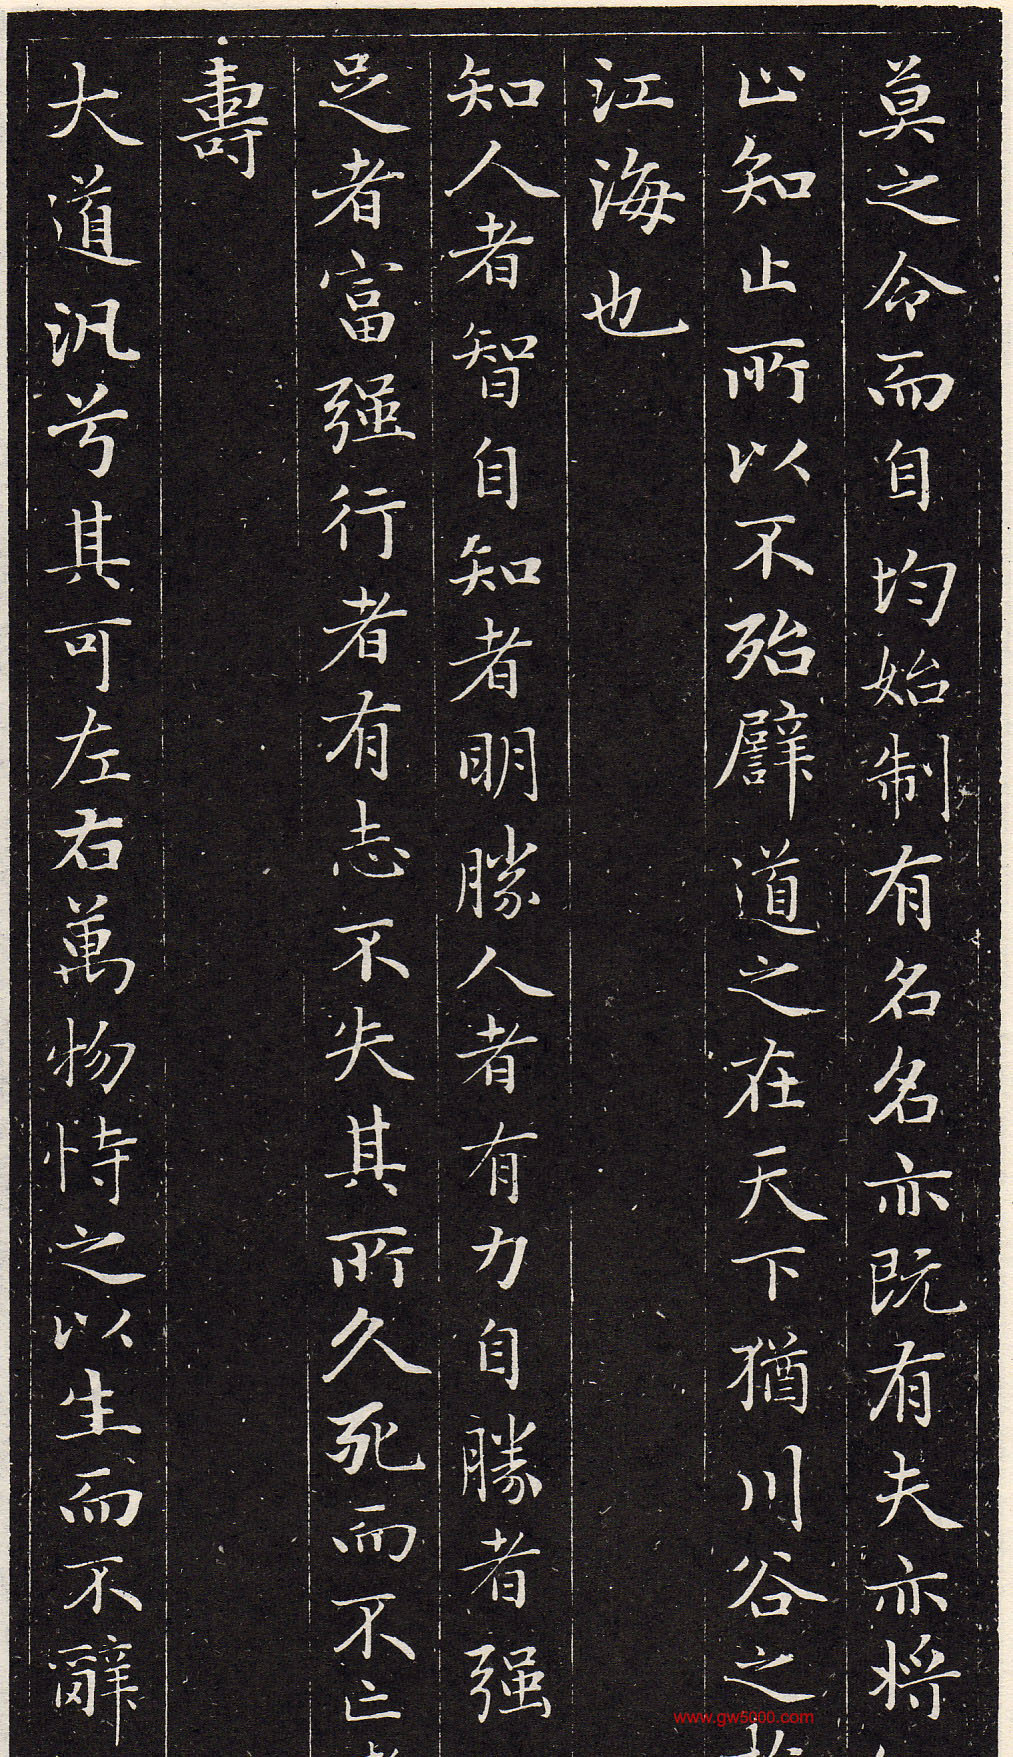 莫之令而自均始制有名名亦既有夫亦將
止知止所以不殆譬道之在天下猶川谷之
江海也
知人者智自知者明勝人者有力自勝者强
足者富强行者有志不失其所久死而不亡
壽
大道汎兮其可左右萬物恃之以生而不辭
www.gw5000.com